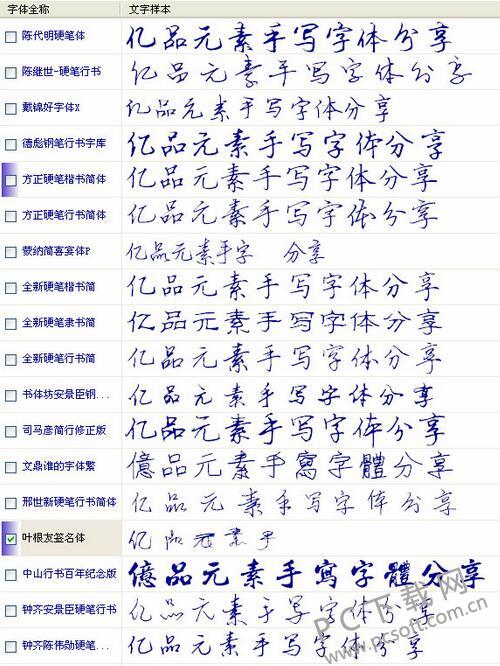 字体全称 文字样本
陈代明硬笔体 亿品元素手写字体分享
陈继世-硬笔行书 亿品元素手写字体分享
戴锦好字体X 亿品元素手写字体分享
德彪钢笔行书字库 亿品元素手写字体分享
方正硬笔楷书简体 亿品元素手写字体分享
方正硬笔行书简体 亿品元素手写字体分享
蒙纳简喜宾体P 亿品元素手字 分享
全新硬笔楷书简 亿品元素手写字体分享
全新硬笔隶书简 亿品元素手写字体分享
全新硬笔行书简 亿品元素手写字体分享
书体坊安景臣钢... 亿品元素手写字体分享
司马彦简行修正版 亿品元素手写字体分享
文鼎谁的字体繁 億品元素手寫字體分享
邢世新硬笔行书简体 亿品元素手写字体分享
叶根友签名体 亿品元素手
中山行书百年纪念版 億品元素手寫字體分享
钟齐安景臣硬笔行书 亿品元素手写字体分享
钟齐陈伟勋硬笔... 亿品元素手写字体分享
PC下载网
www.pcsoft.com.cn